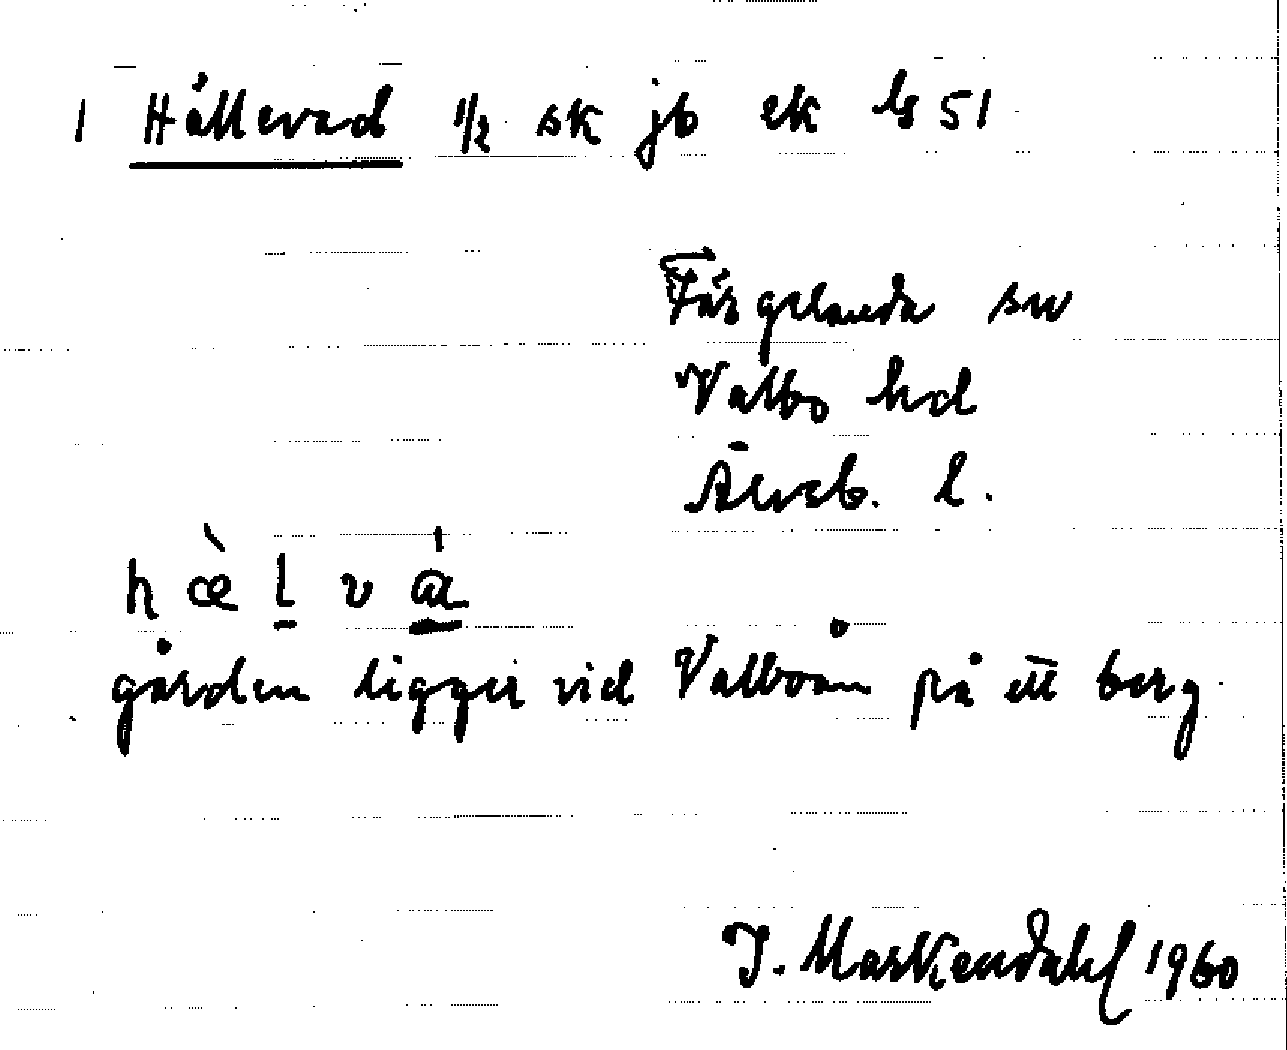 1 Hällevad 1/2 sk jb ek ls 51
Färgelanda sn
Valbo hd
Älvsb. l.
hæ̀lvá̱
gården ligger vid Valboån på ett berg.
J. Markendahl 1960